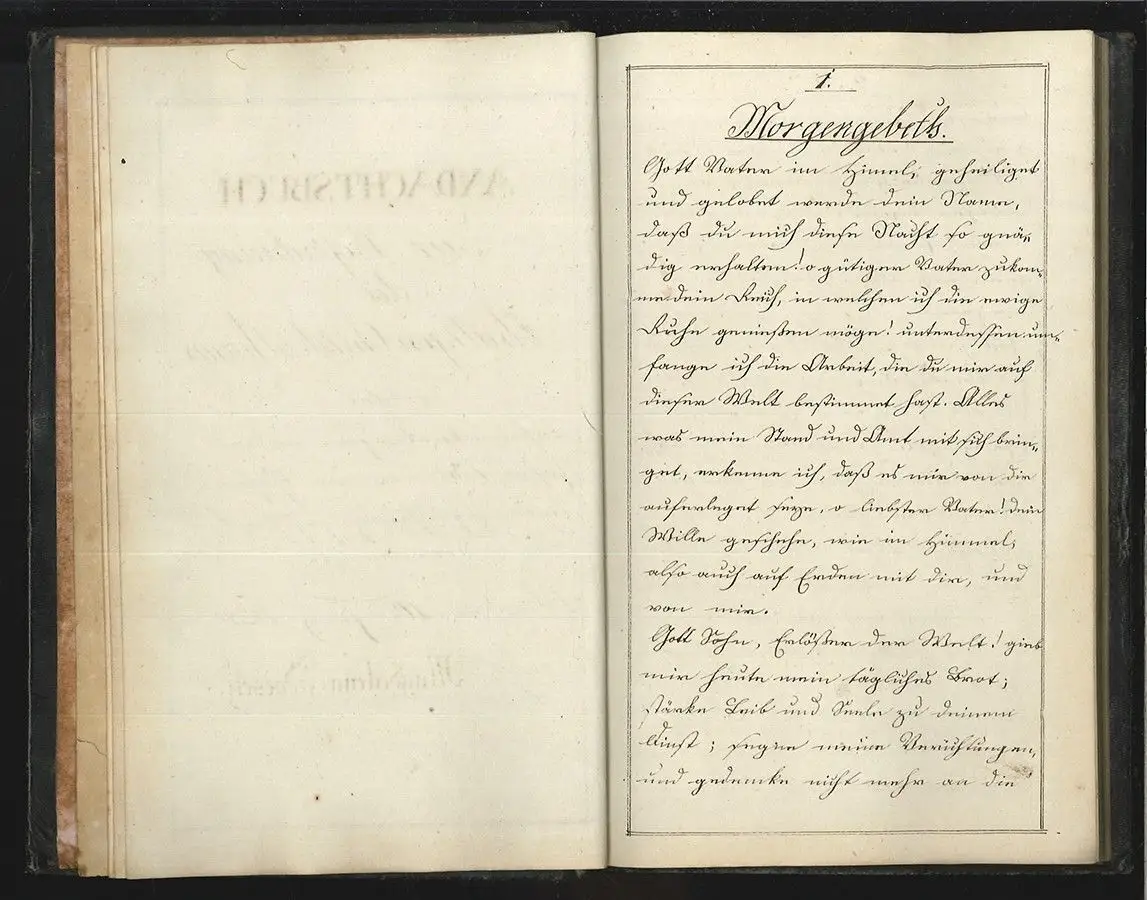 ANDACHTSBUCH
1.
Morgengebeth.
Gott Vater im Himel, geheiliget
und gelobet werde dein Name,
daß du mich diese Nacht so gnä-
dig erhalten! o gütiger Vater zukom-
me dein Reich, in welchen ich die ewige
Ruhe genießen möge! unterdessen um-
fange ich die Arbeit, die du mir auf
dieser Welt bestimmet hast. Alles
was mein Stand und Amt mit sich brin-
get, erkenne ich, daß es mir von dir
auferleget seye, o liebster Vater! dein
Wille geschehe, wie im Himmel,
also auch auf Erden mit dir, und
von mir.
Gott Sohn, Erlößer der Welt! gieb
mir heute mein tägliches Brot;
stärke Leib und Seele zu deinem
Dinst; segne meine Verichtungen,
und gedencke nicht mehr an die